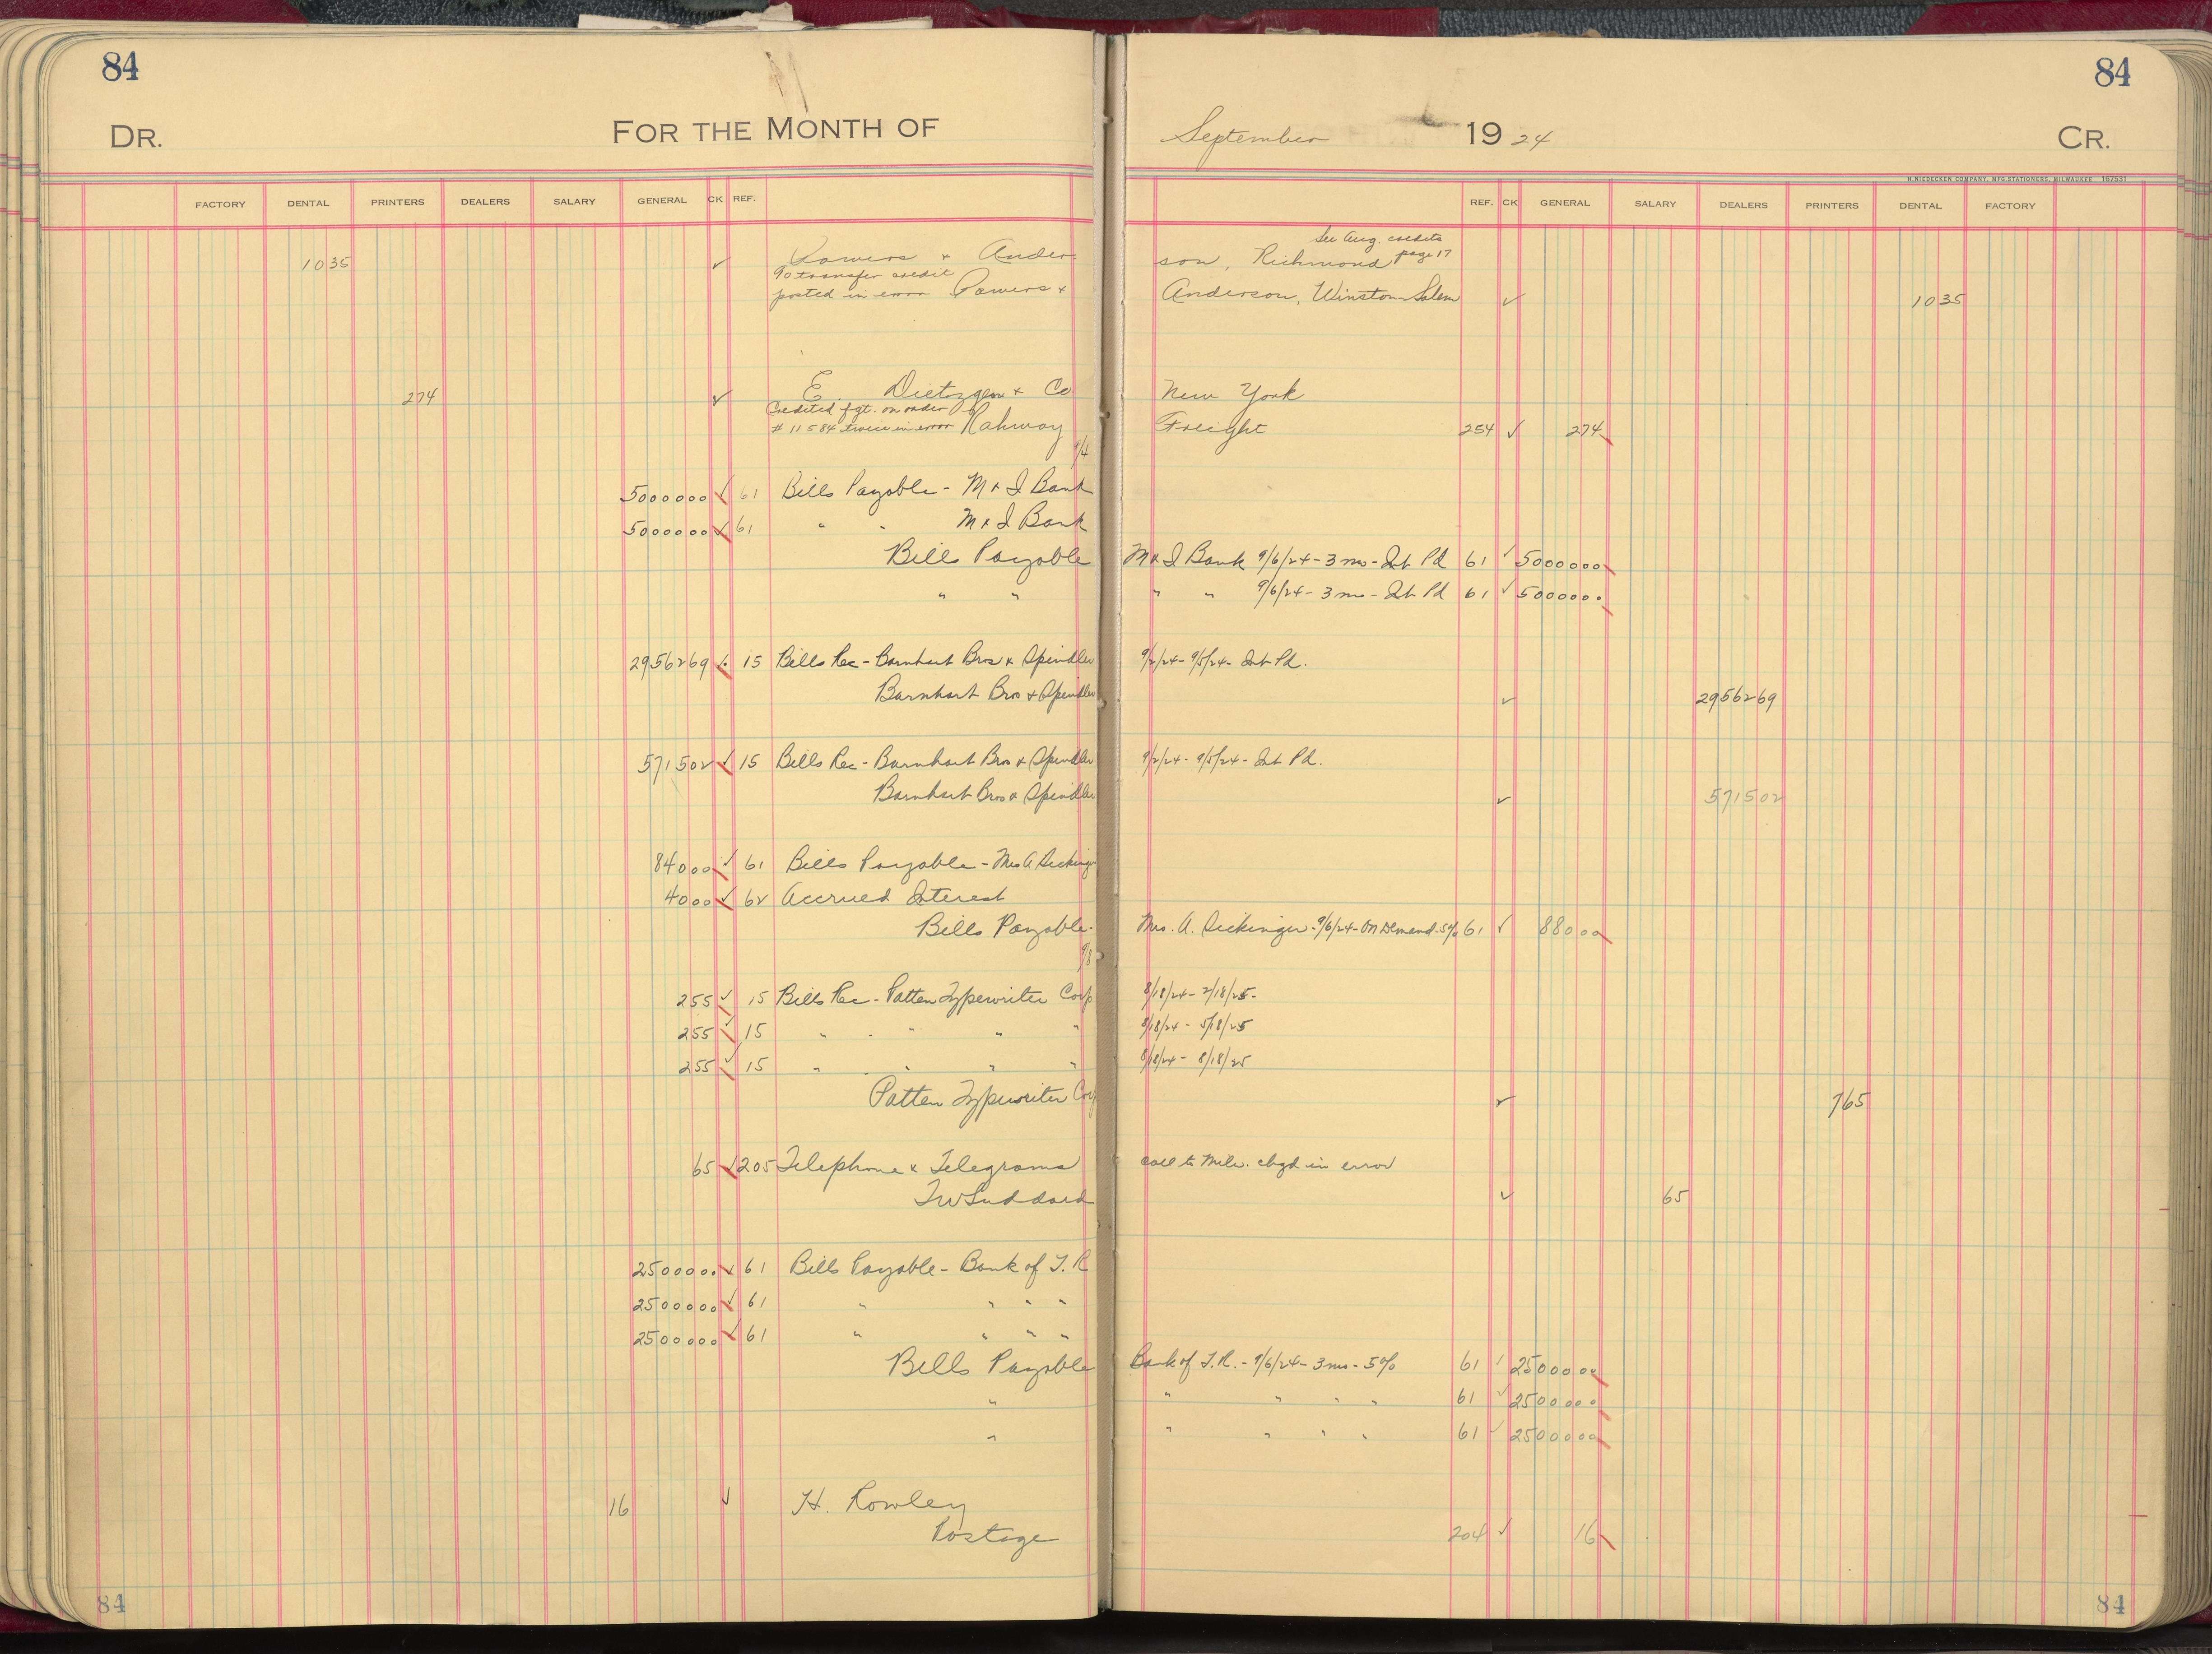 84 84
DR. FOR THE MONTH OF September 1924 CR.
H. NIEDECKEN COMPANY, MFG. STATIONERS, MILWAUKEE 167531
FACTORY DENTAL PRINTERS DEALERS SALARY GENERAL CK REF. REF. CK GENERAL SALARY DEALERS PRINTERS DENTAL FACTORY
See Aug. credits
1035 ✓ Powers & Ander son, Richmond page 17
To transfer credit
posted in error Powers & Anderson, Winston Salem ✓ 1035
274 ✓ E. Dietzgen & Co New York
Credited fgt. on order
# 11584 twice in error Rahway Freight 254 ✓ 274
9/4
5000000 ✓ 61 Bills Payable - M & I Bank
5000000 ✓ 61 " " M & I Bank
Bills Payable M & I Bank 9/6/24 - 3 mo - Int Pd 61 ✓ 5000000
" " " " 9/6/24 - 3 mo - Int Pd 61 ✓ 5000000
2956269 ✓ 15 Bills Rec - Barnhart Bros & Spindler 9/2/24 - 9/5/24 - Int Pd.
Barnhart Bros & Spindler ✓ 2956269
571502 ✓ 15 Bills Rec - Barnhart Bros & Spindler 9/2/24 - 9/5/24 - Int Pd.
Barnhart Bros & Spindler ✓ 571502
84000 ✓ 61 Bills Payable - Mrs A Sickinger
4000 ✓ 62 Accrued Interest
Bills Payable - Mrs. A. Sickinger - 9/6/24 - On Demand - 5% 61 ✓ 88000
9/8
255 ✓ 15 Bills Rec - Patten Typewriter Corp 8/18/24 - 2/18/25 -
255 ✓ 15 " - " " " 8/18/24 - 5/18/25
255 ✓ 15 " - " " " 8/18/24 - 8/18/25
Patten Typewriter Corp ✓ 765
65 ✓ 205 Telephone & Telegrams call to Milw. chgd in error
TW Suddard ✓ 65
2500000 ✓ 61 Bills Payable - Bank of T. R
2500000 ✓ 61 " " " "
2500000 ✓ 61 " " " "
Bills Payable Bank of T. R. - 9/6/24 - 3 mo - 5% 61 ✓ 2500000
" " " " " 61 ✓ 2500000
" " " " " 61 ✓ 2500000
16 ✓ H. Rowley
Postage 204 ✓ 16
84 84